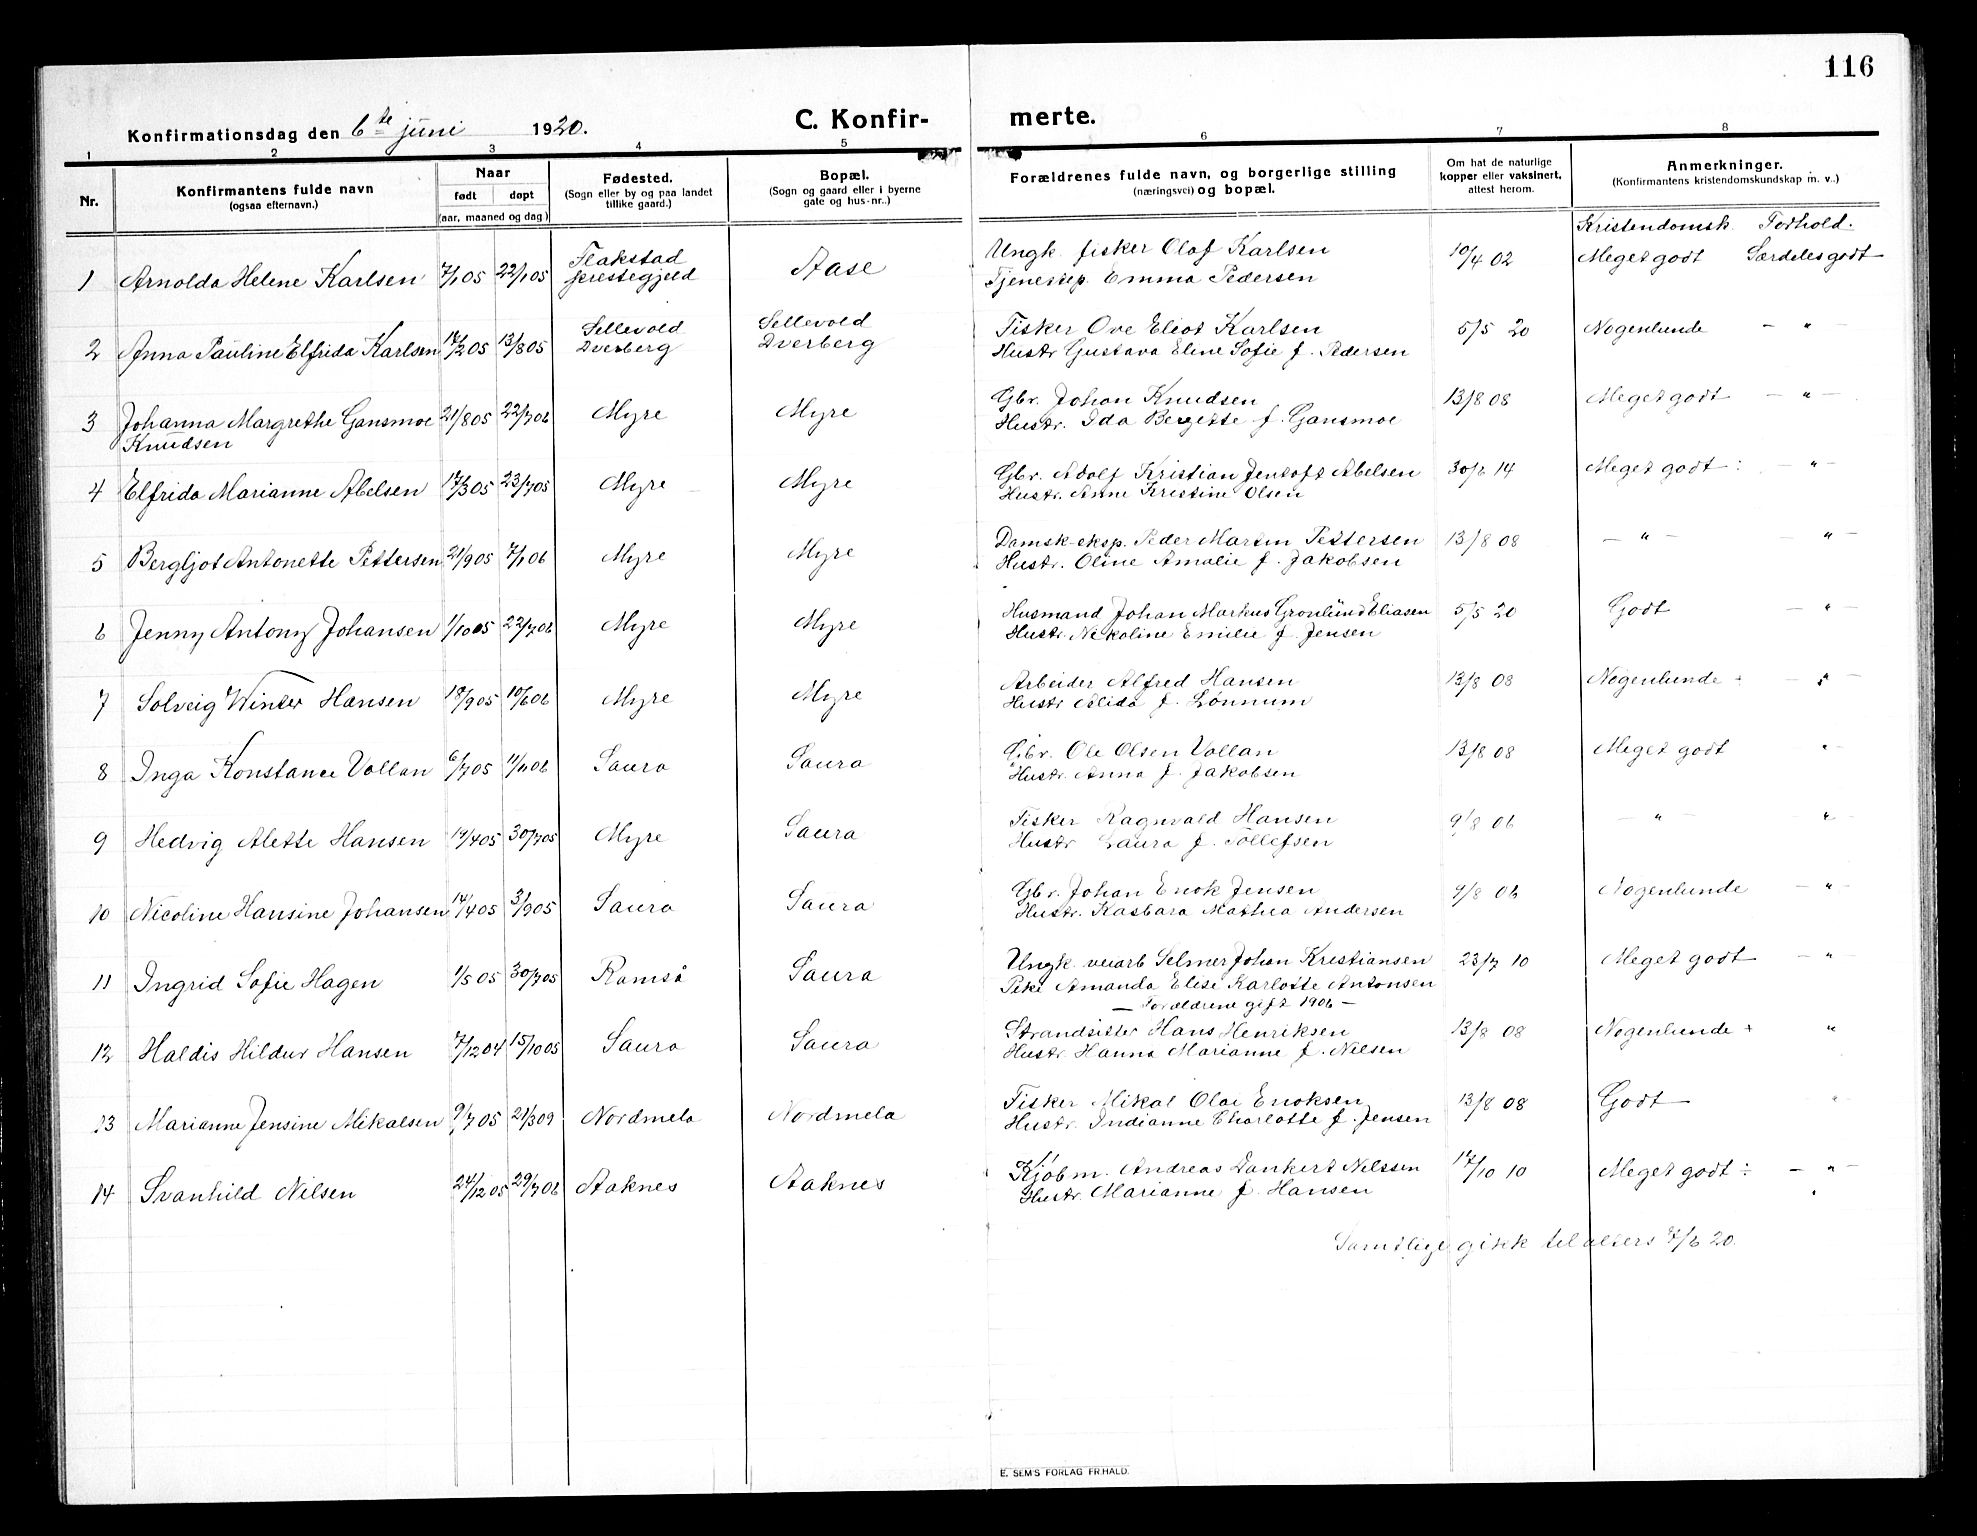 116
Konfirmationsdag den 6te juni 1920.
C. Konfir-
merte.
1 2 3 4 5 6 7 8
Nr.
Konfirmantens fulde navn
(ogsaa efternavn.)
Naar
født døpt
(aar, maaned og dag)
Fødested.
(Sogn eller by og paa landet
tillike gaard.)
Bopæl.
(Sogn og gaard eller i byerne
gate og hus-nr..)
Forældrenes fulde navn, og borgerlige stilling
(næringsvei) og bopæl.
Om hat de naturlige
kopper eller vaksinert,
attest herom.
Anmerkninger.
(Konfirmantens kristendomskundskap m. v..)
Kristendomsk. Forhold.
1 Arnolda Helene Karlsen 7/1 05 22/1 05 Flakstad prestegjeld Aase Ungk. fisker Olaf Karlsen 10/4 02 Meget godt Særdeles godt
Tjenestep. Emma Pedersen
2 Anna Pauline Elfrida Karlsen 17/2 05 13/8 05 Sellevold Dverberg Sellevold Dverberg Fisker Ove Eliot Karlsen 5/5 20 Nogenlunde — " —
Hustr Gustava Eline Sofie f. Pedersen
3 Johanna Margrethe Gansmoe 21/8 05 22/7 06 Myre Myre Gbr. Johan Knudsen 13/8 08 Meget godt — " —
Knudsen Hustr. Ida Bergette f. Gansmoe
4 Elfrida Marianne Abelsen 17/3 05 23/7 05 Myre Myre Gbr. Adolf Kristian Jentoft Abelsen 30/6 14 Meget godt ÷ — " —
Hustr. Anne Kristine Olsen
5 Bergljot Antonette Pettersen 21/9 05 7/1 06 Myre Myre Damsk.eksp. Peder Martin Pettersen 13/8 08 — " — — " —
Hustr. Oline Amalie f. Jakobsen
6 Jenny Antony Johansen 1/10 05 22/7 06 Myre Myre Husmand Johan Markus Gronlünd Eliasen 5/5 20 Godt — " —
Hustr. Nikoline Emilie f. Jensen
7 Solveig Winter Hansen 18/9 05 10/6 06 Myre Myre Arbeider Alfred Hansen 13/8 08 Nogenlunde + — " —
Hustr Alida f. Lønnum
8 Inga Konstance Vollan 6/7 05 11/11 06 Saura Saura Gbr. Ole Olsen Vollan 13/8 08 Meget godt "
Hustr. Anna f. Jakobsen
9 Hedvig Alette Hansen 14/4 05 30/7 05 Myre Saura Fisker Ragnvald Hansen 9/8 06 — " — " —
Hustr Laura f. Tollefsen
10 Nicoline Hansine Johansen 14/4 05 3/9 05 Saura Saura Gbr. Johan Enok Jensen 9/8 06 Nogenlunde — " —
Hustr. Kasbara Mathea Andersen
11 Ingrid Sofie Hagen 1/5 05 30/7 05 Ramså Saura Ungk. veiarb Selmer Johan Kristiansen 23/7 10 Meget godt — " —
Pike Amanda Elise Karlotte Antonsen
— Forældrene gift 1906 —
12 Haldis Hildur Hansen 7/12 04 15/10 05 Saura Saura Strandsitter Hans Henriksen 13/8 08 Nogenlunde + "
Hustr. Hanna Marianne f. Nilsen
13 Marianne Jensine Mikalsen 9/7 05 21/3 09 Nordmela Nordmela Fisker Mikal Olai Enoksen 13/8 08 Godt "
Hustr. Indianne Charlotte f. Jensen
14 Svanhild Nilsen 24/12 05 29/7 06 Aaknes Aaknes Kjøbm. Andreas Dankert Nilssen 17/10 10 Meget godt ÷ — " —
Hustr. Marianne f. Hansen
Samtlige gikk til alters 7/6 20.
E. SEM'S FORLAG FR.HALD.